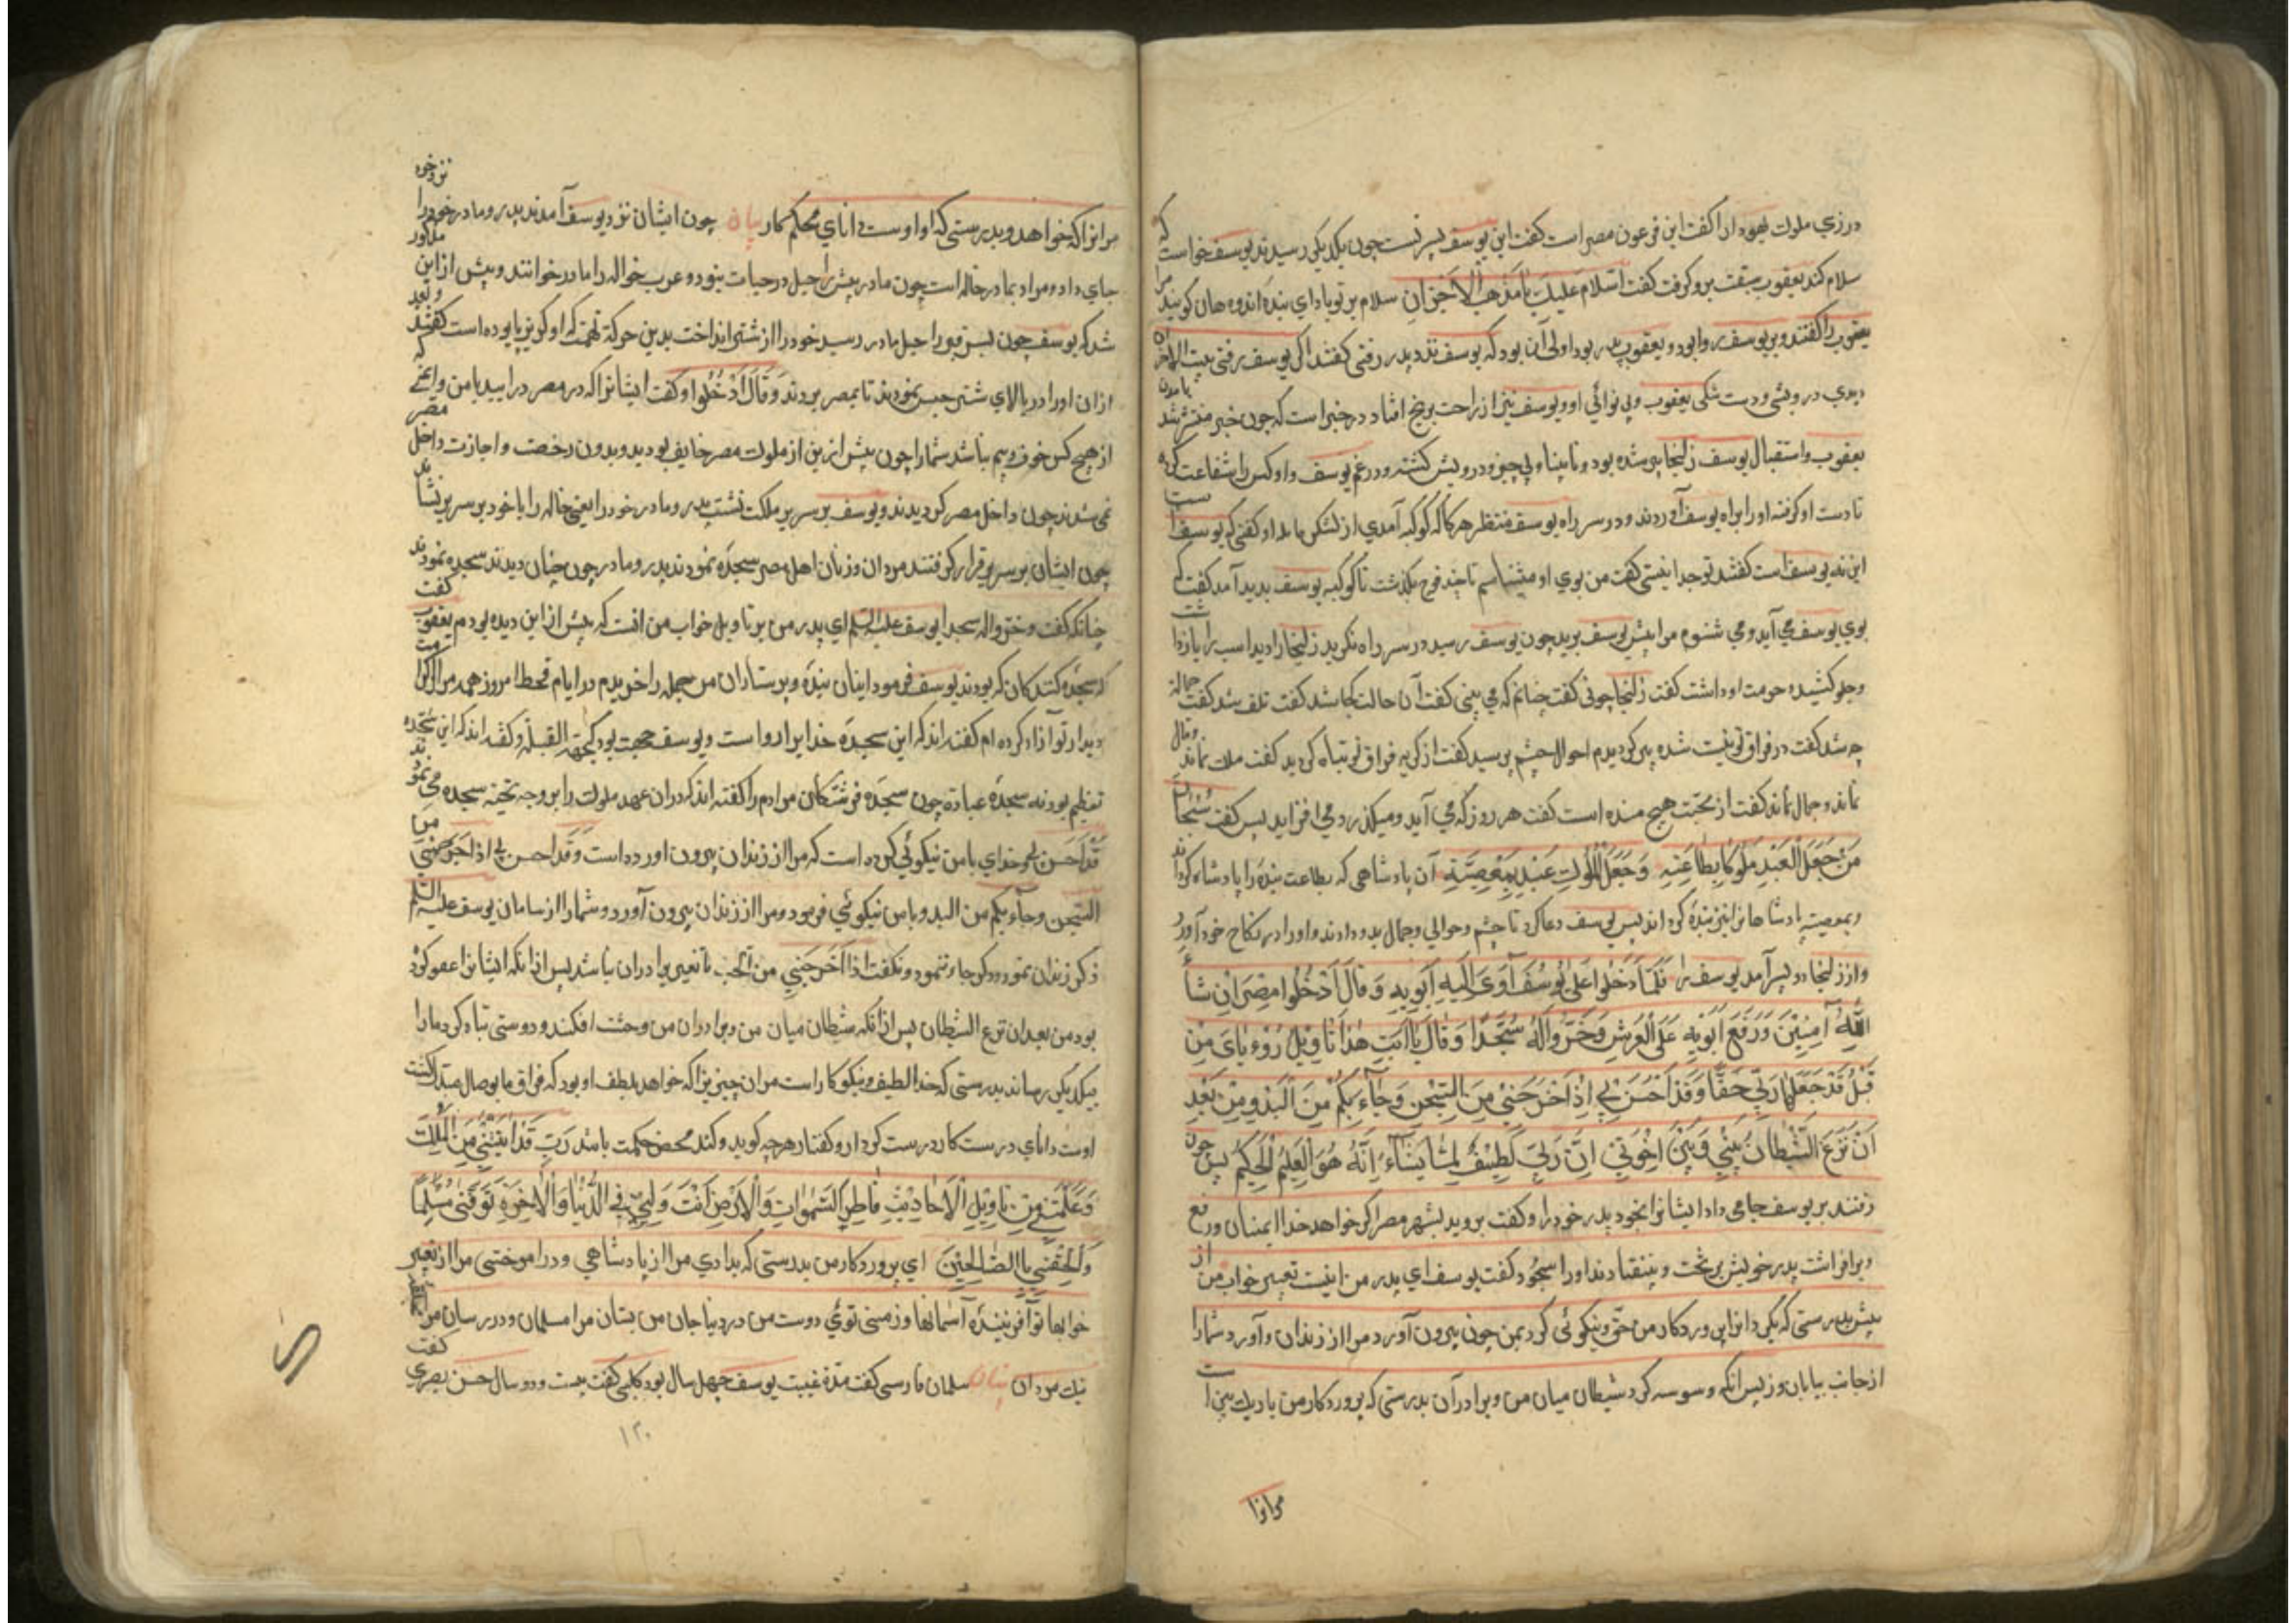 در زي ملوك يهودا را گفت اين فرعون مصر است گفت اين يوسف پسر تست چون بيكديگر رسيدند يوسف خواست كه
سلام كند يعقوب سبقت برو گرفت گفت السّلام عليك يا مذهب الاحزان سلام بر تو باد اي برنده اندوهان گويند مر
يعقوب را گفتند و بر يوسف روا بود و يعقوب پدر بود اولى آن بود كه يوسف نزد پدر رفتي گفتند اگر يوسف برفتي بيت الاحزان
ديدي درويشي و دست تنگي يعقوب و بي نوائي او و يوسف نيز از راحت برنج افتاد در خبر است كه چون خبر منتشر شد بامدن
يعقوب و استقبال يوسف زليخا پير شده بود و نابينا و بي چيز و درويش گشته و در غم يوسف و او كس را شفاعت كرد
تا دست او گرفته او را براه يوسف آوردند و در سر راه يوسف منتظر هرگاه كه كوكبه آمدي از لشكر بامداد گفتي كه يوسف است
اين نه يوسف است گفتند تو چه دانستي گفت من بوي او ميشناسم تا چند فوج بگذشت تا كوكبه يوسف پديد آمد گفت كه
بوي يوسف مي آيد و مي شنوم مرا پيش يوسف بريد چون يوسف رسيد در سر راه نگريد زليخا را ديد اسب را بازداشت
و جلو كشيده حرمت او داشت گفت زليخا چوني گفت چنانم كه مي بيني گفت آن حالت كجا شد گفت تلف شد گفت جمالت
چه شد گفت در فراق تو نيست شده پير گرديدم احوال چشم پرسيد گفت از گريه فراق تو تباه گرديد گفت ملك نماند و مال
نماند و جمال نماند گفت از محبت هيچ مانده است گفت هر روز كه مي آيد و ميگذرد مي افزايد پس گفت سبحان
من جعل العبد ملوكا بطاعته و جعل الملوك عبيد بمعصيته آن پادشاهي كه بطاعت بنده را پادشاه گرداند
و بمعصيت پادشاهانرا نيز بنده گرداند پس يوسف دعا كرد تا چشم و حوالي و جمال بدو دادند و او را در نكاح خود آورد
و از زليخا دو پسر آمد يوسف را فَلَمَّا دَخَلُوا عَلى يُوسُفَ آوَى اِلَيْهِ اَبَوَيْهِ وَ قَالَ اَدْخُلُوا مِصْرَ اِنْ شَاءَ
اللّٰهُ آمِنِيْنَ وَ رَفَعَ اَبَوَيْهِ عَلَى الْعَرْشِ وَ خَرُّوا لَهُ سُجَّدًا وَ قَالَ يَا اَبَتِ هٰذَا تَاْوِيْلُ رُؤْيَايَ مِنْ
قَبْلُ قَدْ جَعَلَهَا رَبِّي حَقًّا وَ قَدْ اَحْسَنَ بِي اِذْ اَخْرَجَنِيْ مِنَ السِّجْنِ وَ جَاءَ بِكُمْ مِنَ الْبَدْوِ مِنْ بَعْدِ
اَنْ نَزَغَ الشَّيْطَانُ بَيْنِي وَ بَيْنَ اِخْوَتِيْ اِنَّ رَبِّيْ لَطِيْفٌ لِمَا يَشَاءُ اِنَّهُ هُوَ الْعَلِيْمُ الْحَكِيْمُ پس چون
رفتند بر يوسف جاي داد ايشانرا بخود پدر خود را و گفت برويد بشهر مصر اگر خواهد خدا ايمنان و رفع
و برافراشت پدر خويش بر تخت و بيفتادند او را سجود و گفت يوسف اي پدر من اينست تعبير خواب من از
پيش بدرستي كه گردانرا پروردگار من حق و نيكوئي كرد بمن چون بيرون آورد مرا از زندان و آورد شما را
از جانب بيابان و ز پس آنكه وسوسه كرد شيطان ميان من و برادران بدرستي كه پروردگار من باريك بين است
مرانرا
مرانرا كه خواهد و بدرستي كه او اوست داناي محكم كار بيان چون ايشان نزد يوسف آمدند پدر و مادر خود را نزد خود
جاي داد و مراد بمادر خاله است چون مادر پيش راحيل در حيات نبود و عرب خواله را مادر خوانند و پيش از اين مذكور
شد كه يوسف چون بسر قبر راحيل مادر رسيد خود را از شتر انداخت بدين حركة تهمت كه او گريز پا بوده است گفتند و بعد
از ان او را در بالاي شتر حبس نمودند تا بمصر بردند وَ قَالَ اَدْخُلُوا و گفت ايشانرا كه در مصر درآييد بامن و ايمني كه
از هيچ كس خوف و بيم نباشد شما را چون پيش از ين از ملوك مصر خايف بوديد و بدون رخصت و اجازت داخل مصر
نمي شدند چون داخل مصر گرديدند و يوسف بر سرير مملكت نشست پدر و مادر خود را يعني خاله را با خود بر سرير نشاند
چون ايشان بر سرير قرار گرفتند مردان و زنان اهل مصر سجده نمودند پدر و مادر چون چنان ديدند سجده نمودند
چنانكه گفت و خرّوا له سجدا يوسف عليه السّلم اي پدر من بر تاويل خواب من است كه پيش از اين ديده بودم يعقوب گفت
كه سجده كنندكان كه بودند يوسف فرمود اينان بنده و پرستاران من جمله را خريدم در ايام قحط امروز همه را مر اكرامت
ديدار تو آزاد كرده ام گفته اند كه اين سجده خدايرا روا است و يوسف جهت بود كجهة القبلة و گفته اند كه اين سجده
تعظيم بود نه سجده عبادة چون سجده فرشتگان مر ادم را گفته اند كه در ان عهد ملوك را بر وجه تحيّت سجده مي نمودند
قَدْ اَحْسَنَ بي خداي با من نيكوئي كرده است كه مرا از زندان بيرون اورده است وَ قَدْ احسن بي اذ اخرجني من
السّجن و جآء بكم من البدو با من نيكوئي فرمود و مرا از زندان بيرون آورد و شما را از سامان يوسف عليه السّلم
ذكر زندان نمود و ذكر چاه ننمود و نگفت اذ اَخْرَجَنِي من الجب تا تعيير برادران نباشد پس از انكه ايشانرا عفو كرده
بود من بعد ان نزغ الشيطان پس از انكه شيطان ميان من و برادران من وحشت افكند و دوستي تباه كرد ما را
بيكديگر رساند بدرستي كه خدا لطيف و نيكو كار است مران چيزيرا كه خواهد بلطف او بود كه فراق ما بوصال مبدل گشت
اوست داناي درست كار درست كردار و گفتار هرچه گويد و كند محض حكمت باشد رَبِّ قَدْ اٰتَيْتَنِيْ مِنَ الْمُلْكِ
وَ عَلَّمْتَنِيْ مِنْ تَاْوِيْلِ الْاَحَادِيْثِ فَاطِرِ السَّمٰوَاتِ وَ الْاَرْضِ اَنْتَ وَلِيّيْ فِي الدُّنْيَا وَ الْاٰخِرَةِ تَوَفَّنِي مُسْلِمًا
وَ اَلْحِقْنِيْ بِاالصَّالِحِيْنَ اي پروردكار من بدرستي كه بدادي مرا از پادشاهي و در اموختي مرا از تعبير
خوابها تو آفريننده آسمانها و زميني توئي دوست من در دنيا جان من بستان مرا مسلمان و در رسان مرا
نيك مردان بيان سلمان فارسي گفت مدّة غيبت يوسف چهل سال بود كلبي گفت بيست و دو سال حسن بصري گفت
١٢٠